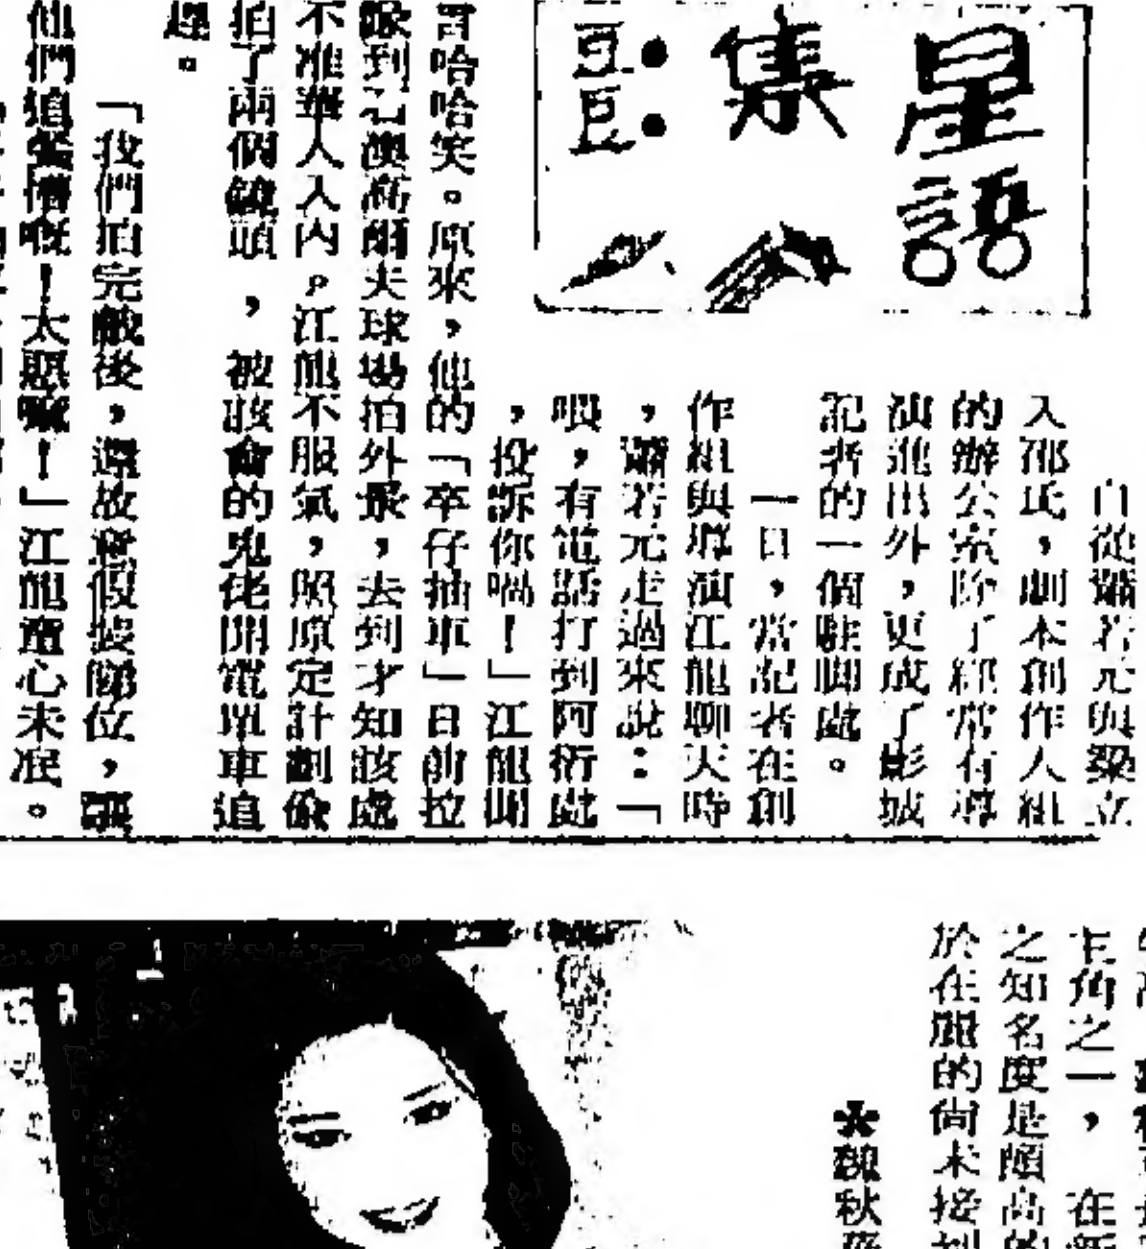 星語
集
：豆豆
自從蕭若元與梁立
入邵氏，劇本創作人組
的辦公室除了經常有導
演進出外，更成了影城
記者的一個駐脚處。
一日，當記者在創
作組與導演江龍聊天時
，蕭若元走過來說：「
喂，有電話打到阿衍處
，投訴你喎！」江龍聞
言哈哈笑。原來，他
的「卒仔抽車」日前拉
隊到石澳高爾夫球場拍外景，去到才知該處
不准華人入內。江龍不服氣，照原定計劃偷
拍了兩個鏡頭，被該會的鬼佬開電單車追
趕。
「我們拍完戲後，還故意假裝睇位，讓
他們追餐懵嘅！太惡喇！」江龍童心未泯。
主角之一，在新
之知名度是頗高的
於在麗的尚未接到
＊魏秋